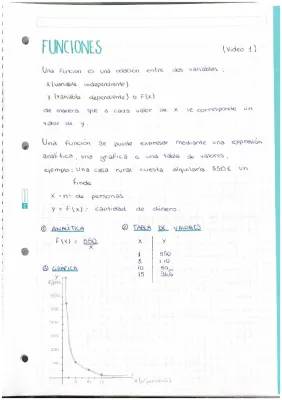 FUNCIONES
(Video 1)
Una función es una relación entre dos variables,
X (variable independiente)
Y (variable dependiente) o F(x)
de manera que a cada valor de X le corresponde un
valor de y.
Una función se puede expresar mediante una expresión
analítica, una gráfica o una tabla de valores,
ejemplo: Una casa rural cuesta alquilarla 550€ un
finde
X = nº de personas
Y = F(x) = cantidad de dinero
① ANALÍTICA
F(x) = 550/x
② TABLA DE VALORES
X Y
1 550
5 110
10
15 36,6
③ GRÁFICA